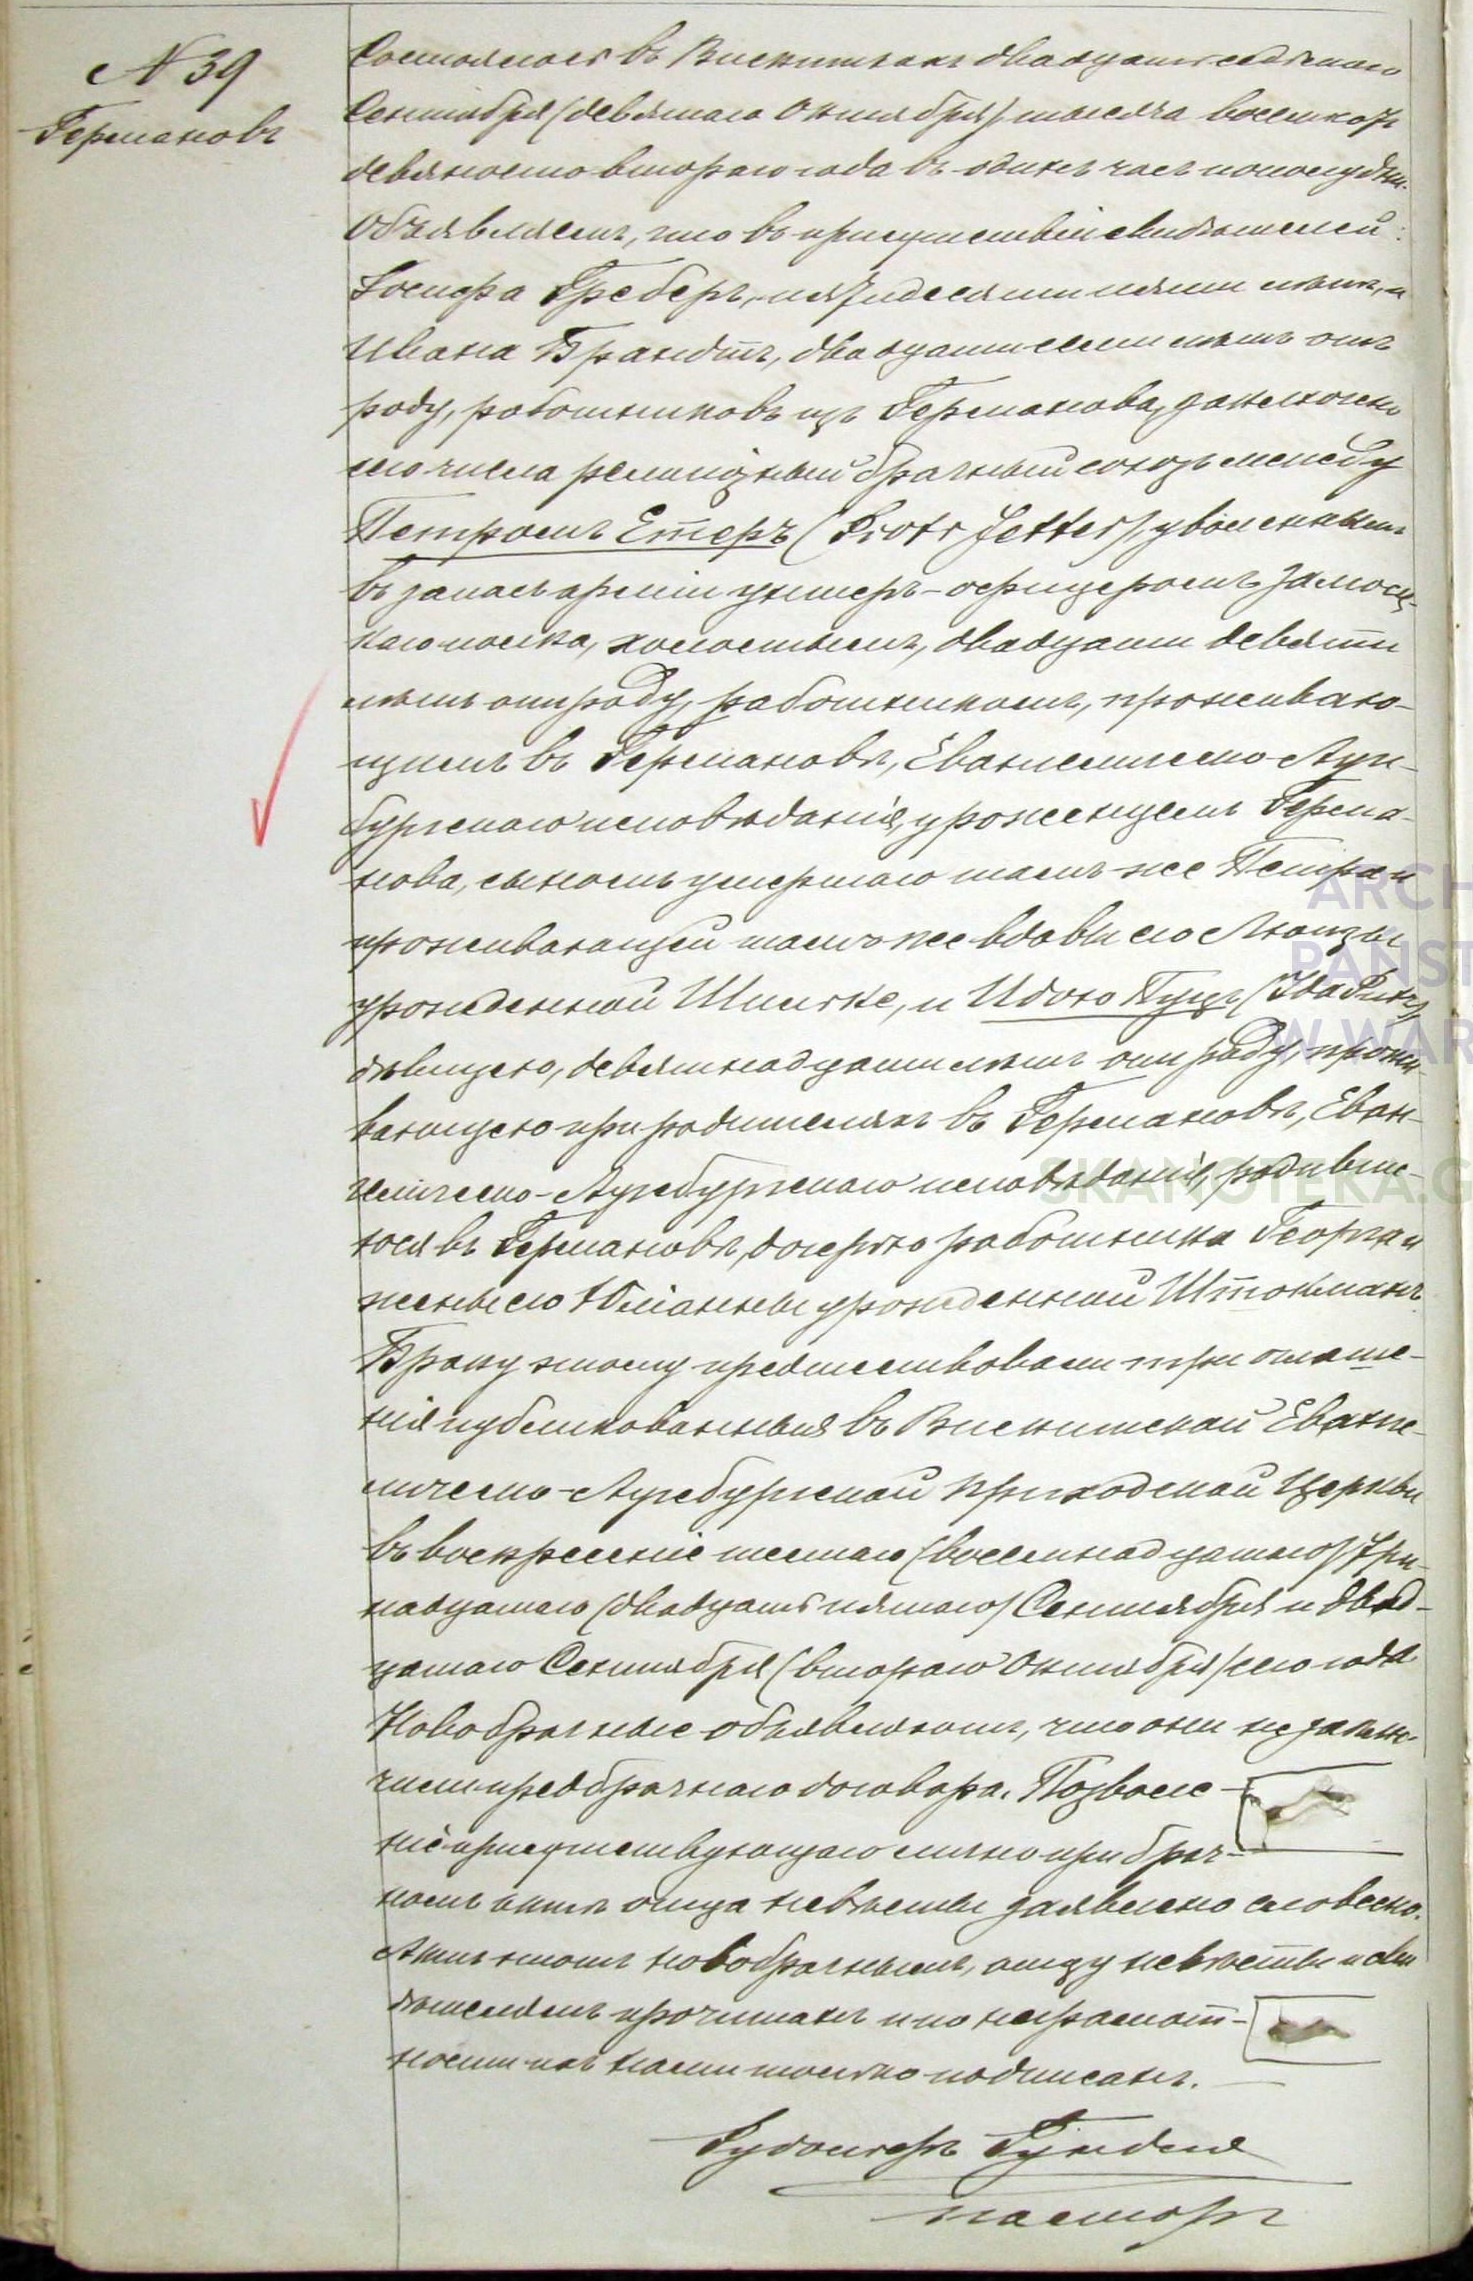 N 39
Германовъ
Состоялось въ Вискиткахъ двадцать седьмаго
Сентября (девятаго Октября) тысяча восемьсотъ
девяносто втораго года въ одинъ часъ пополудни.
Объявляемъ, что въ присутствіи свидѣтелей:
Іосифа Греберъ, пятидесяти пяти лѣтъ, и
Ивана Брандтъ, двадцати семи лѣтъ отъ
роду, работниковъ изъ Германова, заключенъ
сего числа религіозный брачный союзъ между
Петромъ Етеръ (Piotr Jetter), уволеннымъ
въ запасъ арміи унтеръ-офицеромъ Замосц-
каго полка, холостымъ, двадцати девяти
лѣтъ отъ роду, работникомъ, прожи­ваю-
щимъ въ Германовѣ, Евангелическо-Аугс-
бургскаго исповѣданія, уроженцемъ Герма-
нова, сыномъ умершаго тамъ-же Петра и
проживающей тамъ же вдовы его Люизы
урожденной Шимке, и Идою Пуцъ (Ida
дѣвицею, девятнадцати лѣтъ отъ роду, прожи-
вающею при родителяхъ въ Германовѣ, Еван-
гелическо-Аугсбургскаго исповѣданія, родивше-
юся въ Германовѣ, дочерью работника Георга и
жены его Юліанны урожденной Штокманъ.
Браку этому предшествовали три оглаше-
нія публикованныя въ Вискитской Еванге-
лическо-Аугсбургской Приходской Церкви
въ воскресеніе шестаго (восемнадцатаго), Три-
надцатаго (двадцать пятаго) Сентября и двад-
цатаго Сентября (втораго Октября) сего года
Новобрачные объявляютъ, что они не заклю-
чили предбрачнаго договора. Позволе-
ніе присутствующаго лично при брач-
номъ актѣ отца невѣсты заявлено словесно.
Актъ этотъ новобрачнымъ, отцу невѣсты и сви
дѣтелямъ прочитанъ и по неграмот-
ности ихъ нами только подписанъ.
Рудольфъ Гундля
пасторъ
ARCH
PAŃST
W WAR
SKANOTEKA.G